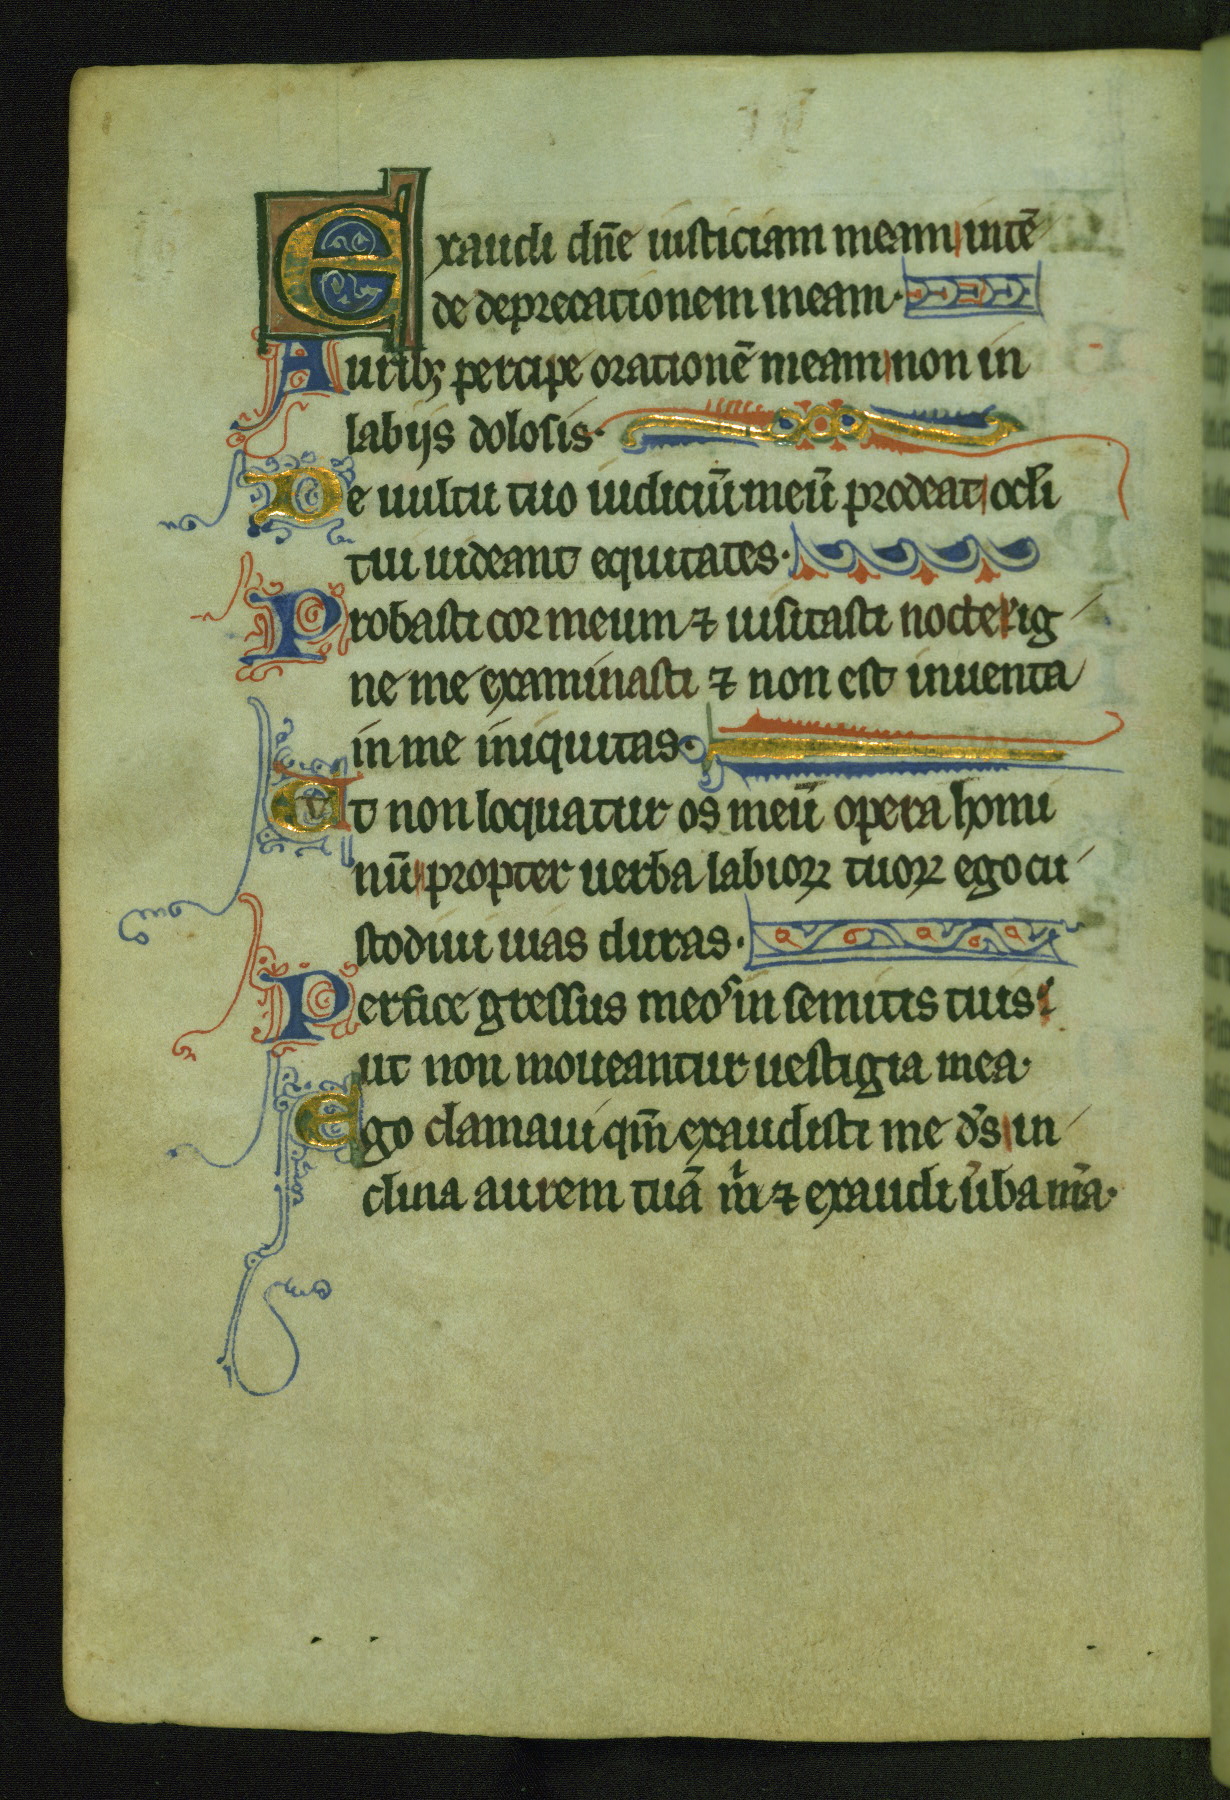 Exaudi dn̄e iusticiam meam intē
de deprecationem meam·
Aurib; percipe orationē meam non in
labijs dolosis·
De uultu tuo iudiciū meū prodeat ocl̄i
tui uideant equitates·
Probasti cor meum ⁊ uisitasti nocte ig
ne me examinasti ⁊ non est inuenta
in me iniquitas
Vt non loquatur os meū opera homi
nū propter uerba labioꝝ tuoꝝ ego cu
stodiui uias duras·
Perfice gressus meos in semitis tuis
ut non moueantur uestigia mea·
Ego clamaui qm̄ exaudisti me d̄s in
clina aurem tuā m̄ ⁊ exaudi ūba m̄a·